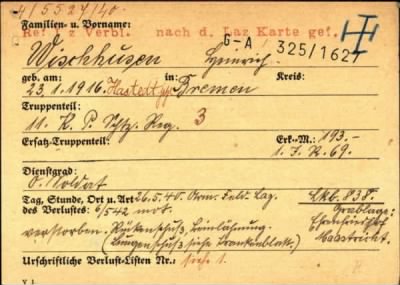 4/5527/40.
Familien- u. Vorname:
Ref z Verbl. nach d. Laz Karte gef.
G-A, 325/162
Wischhusen Heinrich
geb. am: in: Kreis:
23.1.1916 Hastedt Bremen
Truppenteil:
11. K. P. Schtz. Reg. 3
Ersatz-Truppenteil: Erk.-M.: 193.-
1. J. R. 69.
Dienstgrad:
O. Soldat
Tag, Stunde, Ort u. Art 26.5.40. Orm. Feld. Laz. Lkb. 838.
des Verlustes: 6/542 mot. Grablage:
verstorben. Rückenschuß, Beinlähmung. Ehrenfriedhof
(Lungenschuß siehe Krankenblatt.) Maastricht.
Urschriftliche Verlust-Listen Nr.: siehe 1.
V 1.